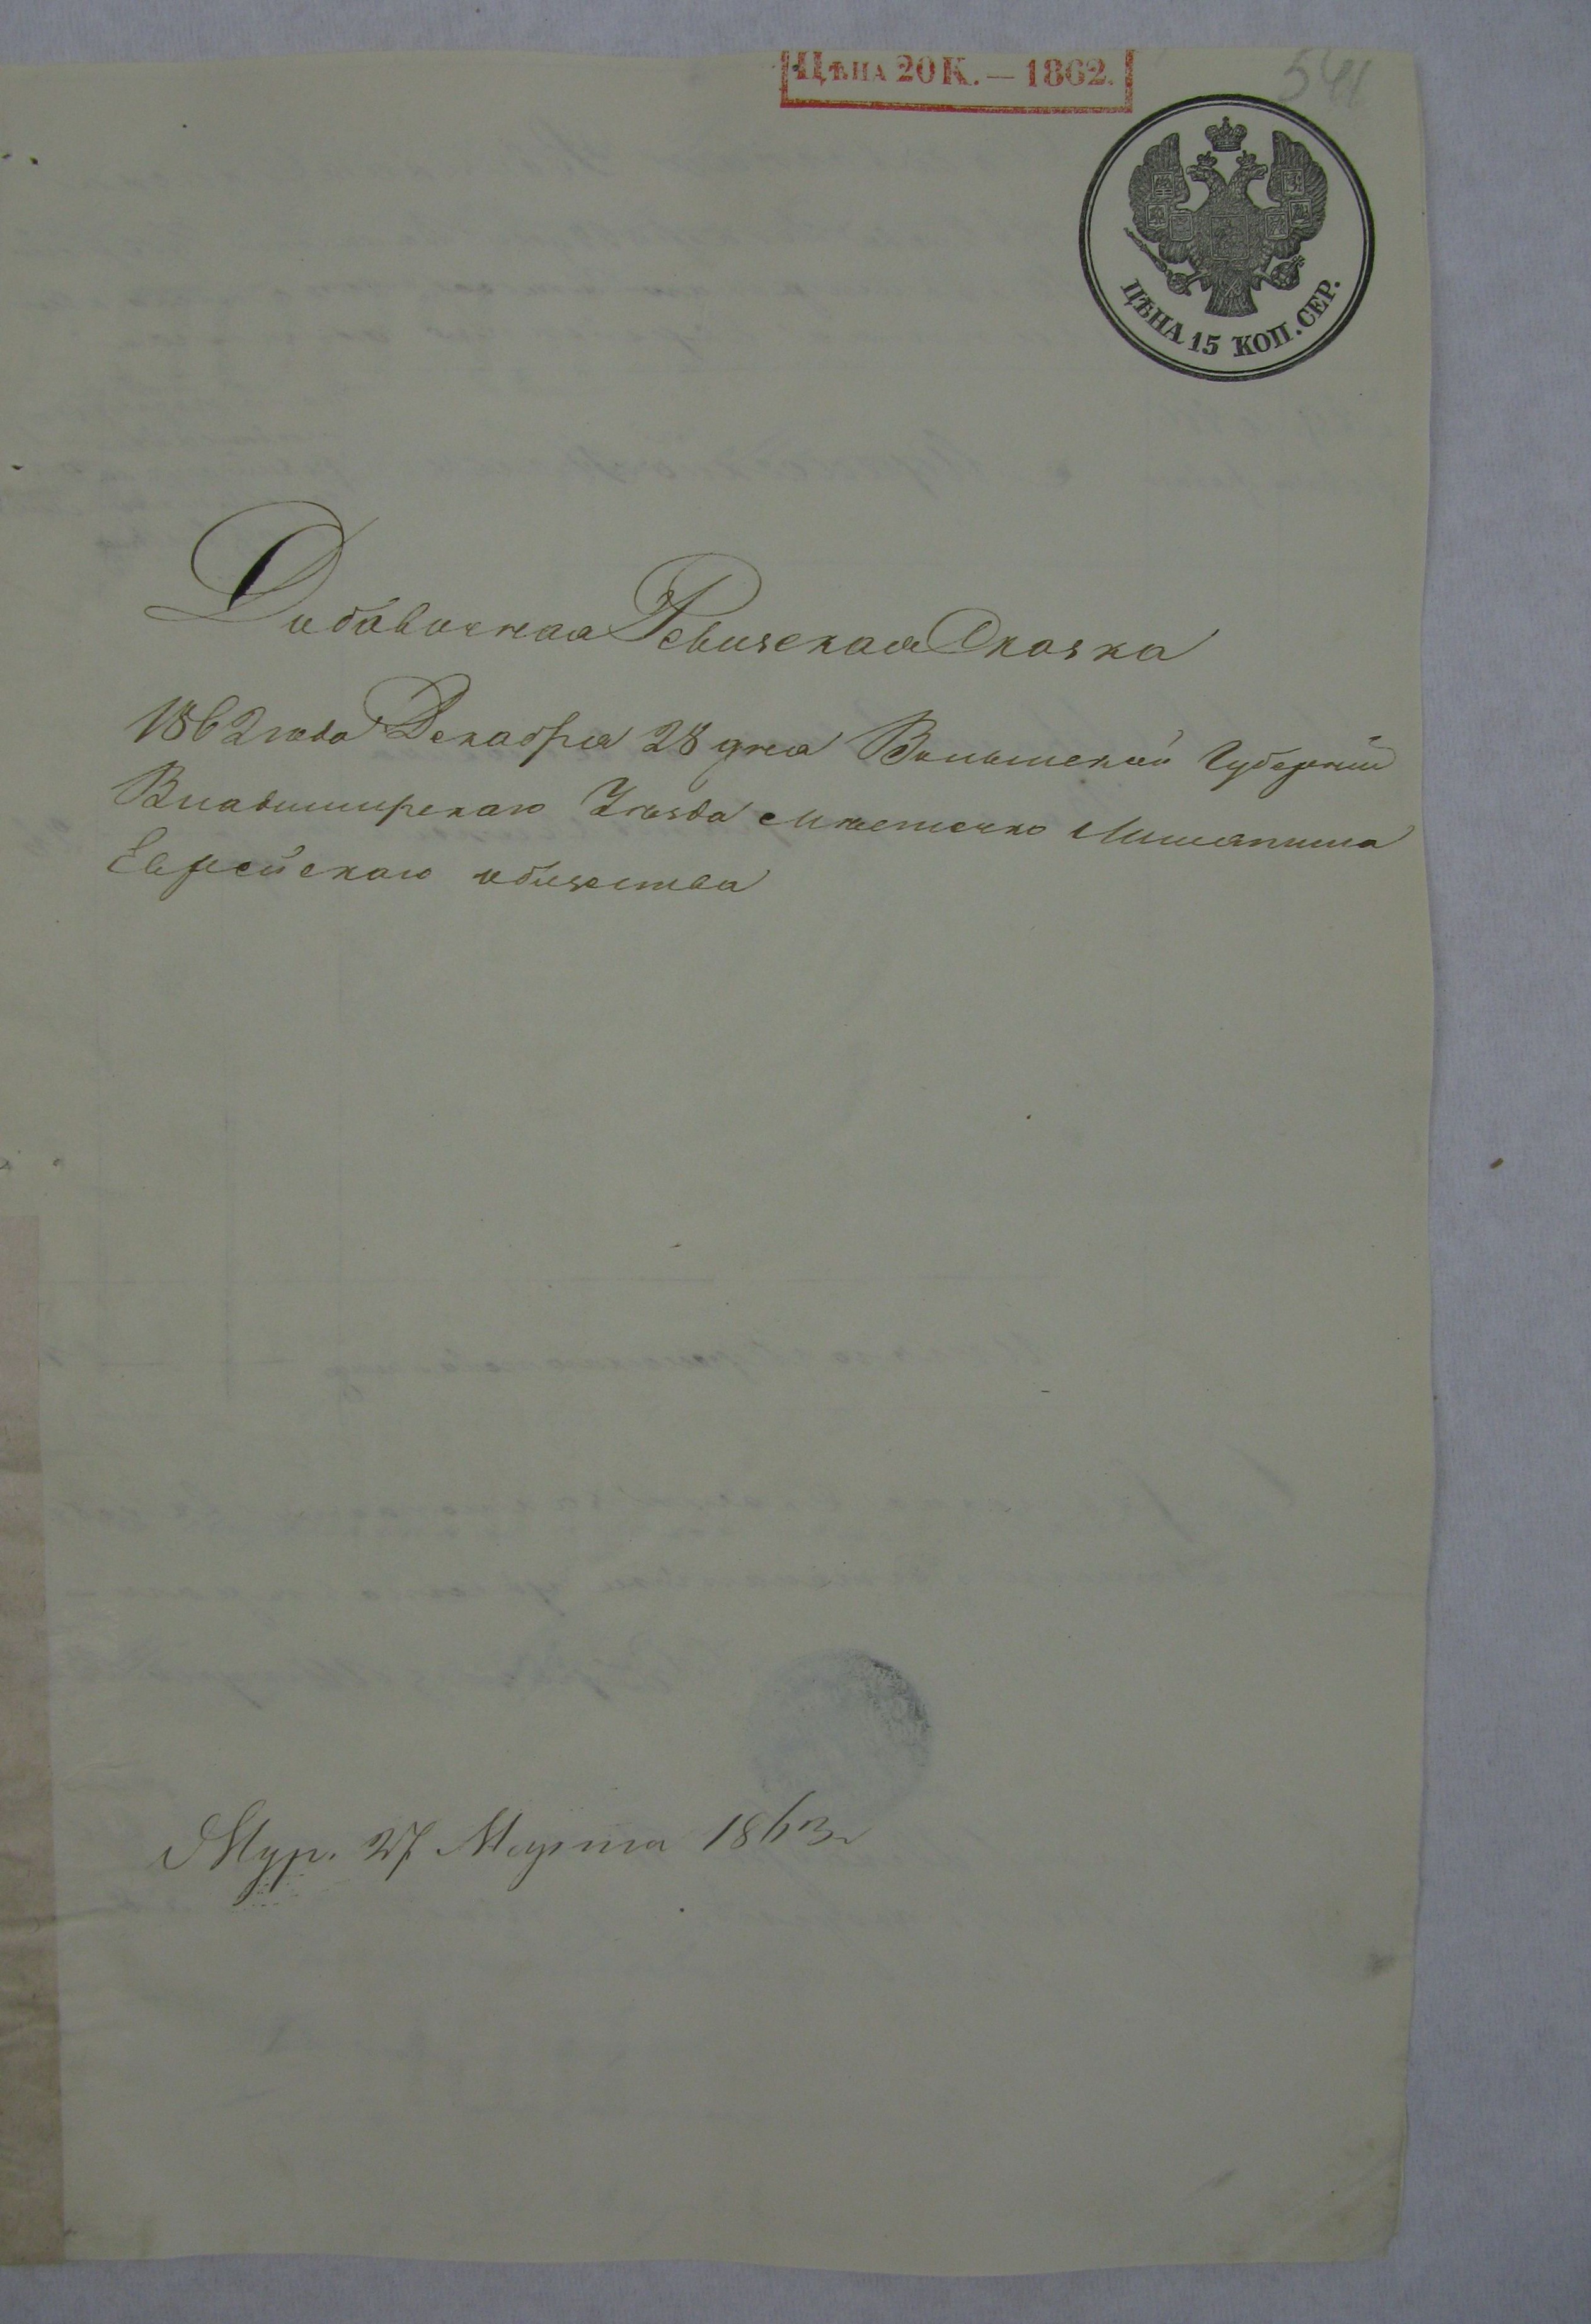 ЦѢНА 20 К. — 1862.
541
ЦѢНА 15 КОП. СЕР.
Добавочная Ревизская Сказка
1862 года Декабря 28 дня Волынской Губерніи
Владимирскаго Уѣзда Мѣстечко
Еврейскаго общества
27 Марта 1863 г